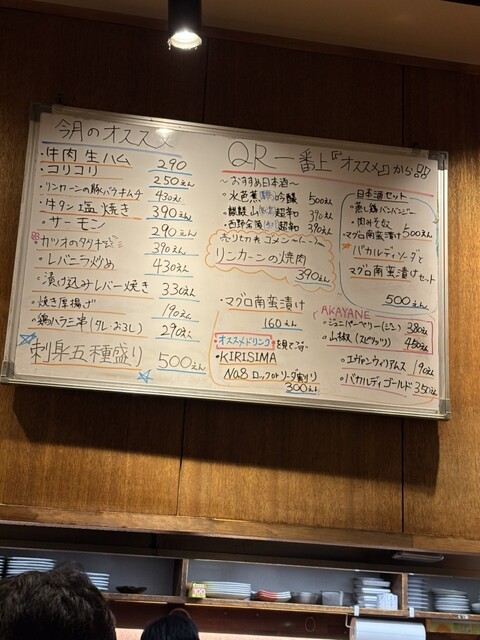 今月のオススメ
・牛肉生ハム 290
コリコリ 250えん
・リンカーンの豚バラキムチ 430えん
・牛タン塩焼き 390えん
・サーモン 290えん
・カツオのタタキ 390えん
・レバニラ炒め 430えん
・漬け込みレバー焼き 330えん
・焼き厚揚げ 190えん
・鶏ハラミ串(タレ・おろし) 290えん
刺身五種盛り 500えん
QR一番上『オススメ』から
~おすすめ日本酒~
・水芭蕉 吟醸 500えん
・麒麟山 超辛 390えん
・吉野金陵 超辛 390えん
売り切れゴメン
リンカーンの焼肉
390えん
・マグロ南蛮漬け
160えん
オススメドリンク
・KIRISIMA
No8 ロック or ソーダ割り
300えん
日本酒セット
・蒸し鶏バンバンジー
・マグロ南蛮漬け 500えん
バカルディソーダと
マグロ南蛮漬けセット
500えん
AKAYANE
・ジュニパーベリー(ジン) 380えん
・山椒(スピリッツ) 450えん
・エヴァンウィリアムス 190えん
・バカルディゴールド 350えん